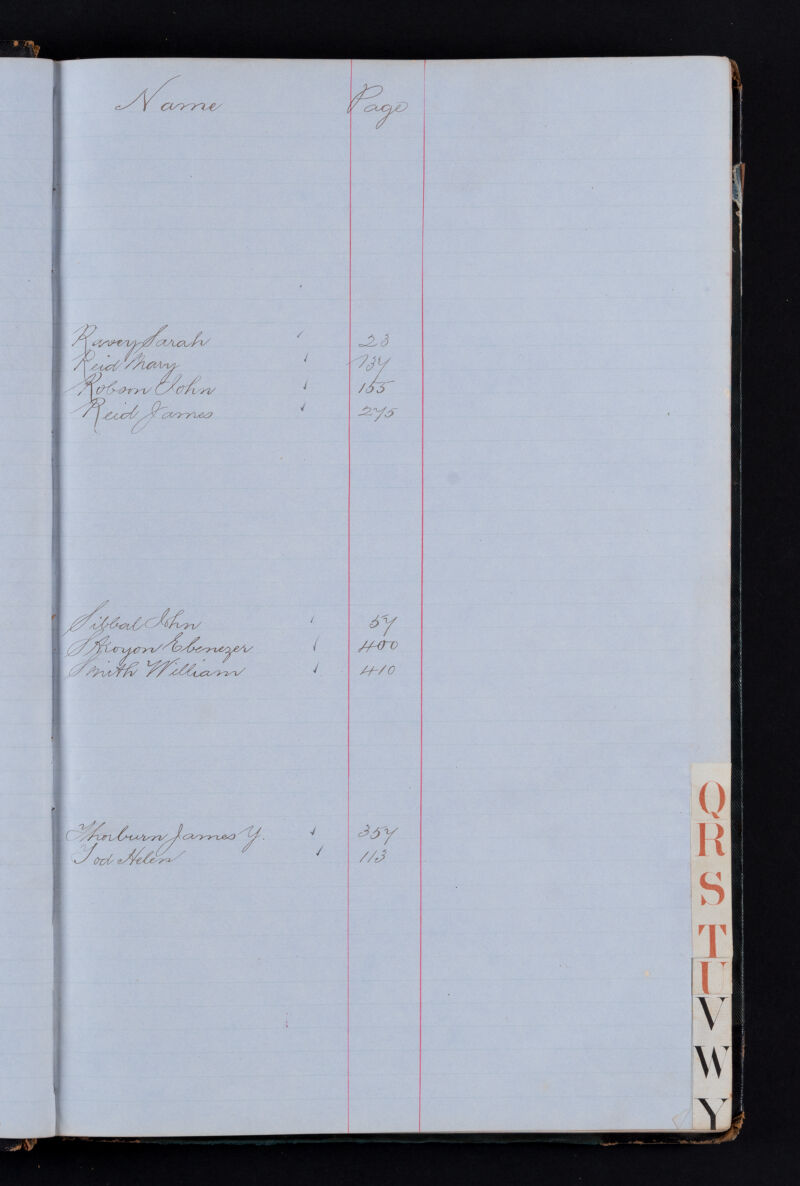 Name Page
Ravey Sarah 23
Reid Mary 137
Robson John 155
Reid James 275
Sibbal John 57
Ebenezer 400
Smith William 410
Thorburn James Y. 357
Tod Helen 113
Q
R
S
T
U
V
W
Y